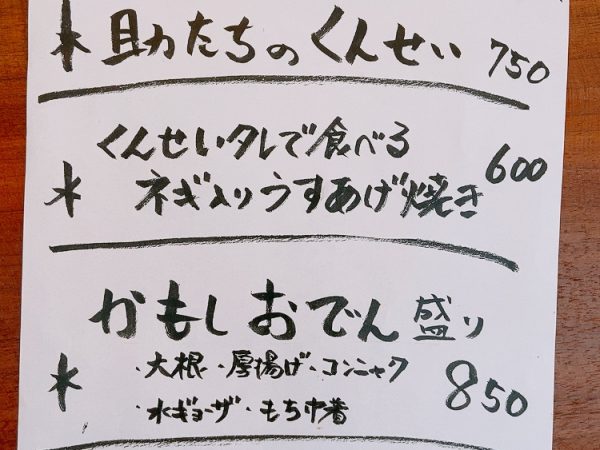 * 助たちのくんせい 750
くんせいタレで食べる
* ネギ入りうすあげ焼き 600
かもし おでん 盛り
* ・大根・厚揚げ・コンニャク
・水ギョーザ・もち巾着 850